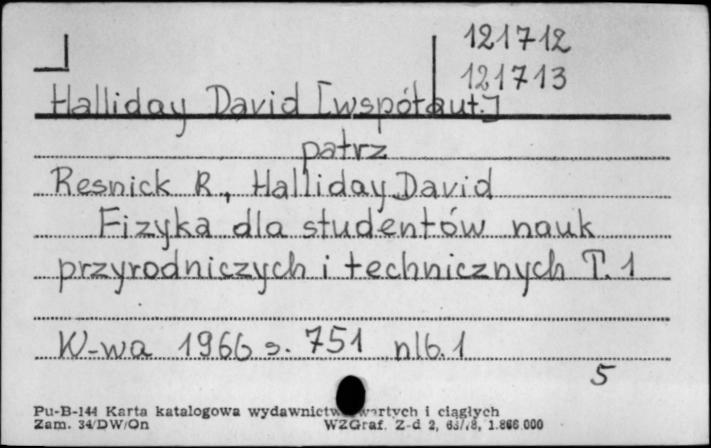 121712
121713
Halliday David [współaut.]
patrz
Resnick R., Halliday David
Fizyka dla studentów nauk
przyrodniczych i technicznych T. 1
W-wa 1966 s. 751 nlb. 1
5
Pu-B-144 Karta katalogowa wydawnictw zwartych i ciągłych
Zam. 34/DW/On WZGraf. Z-d 2, 1.866.000